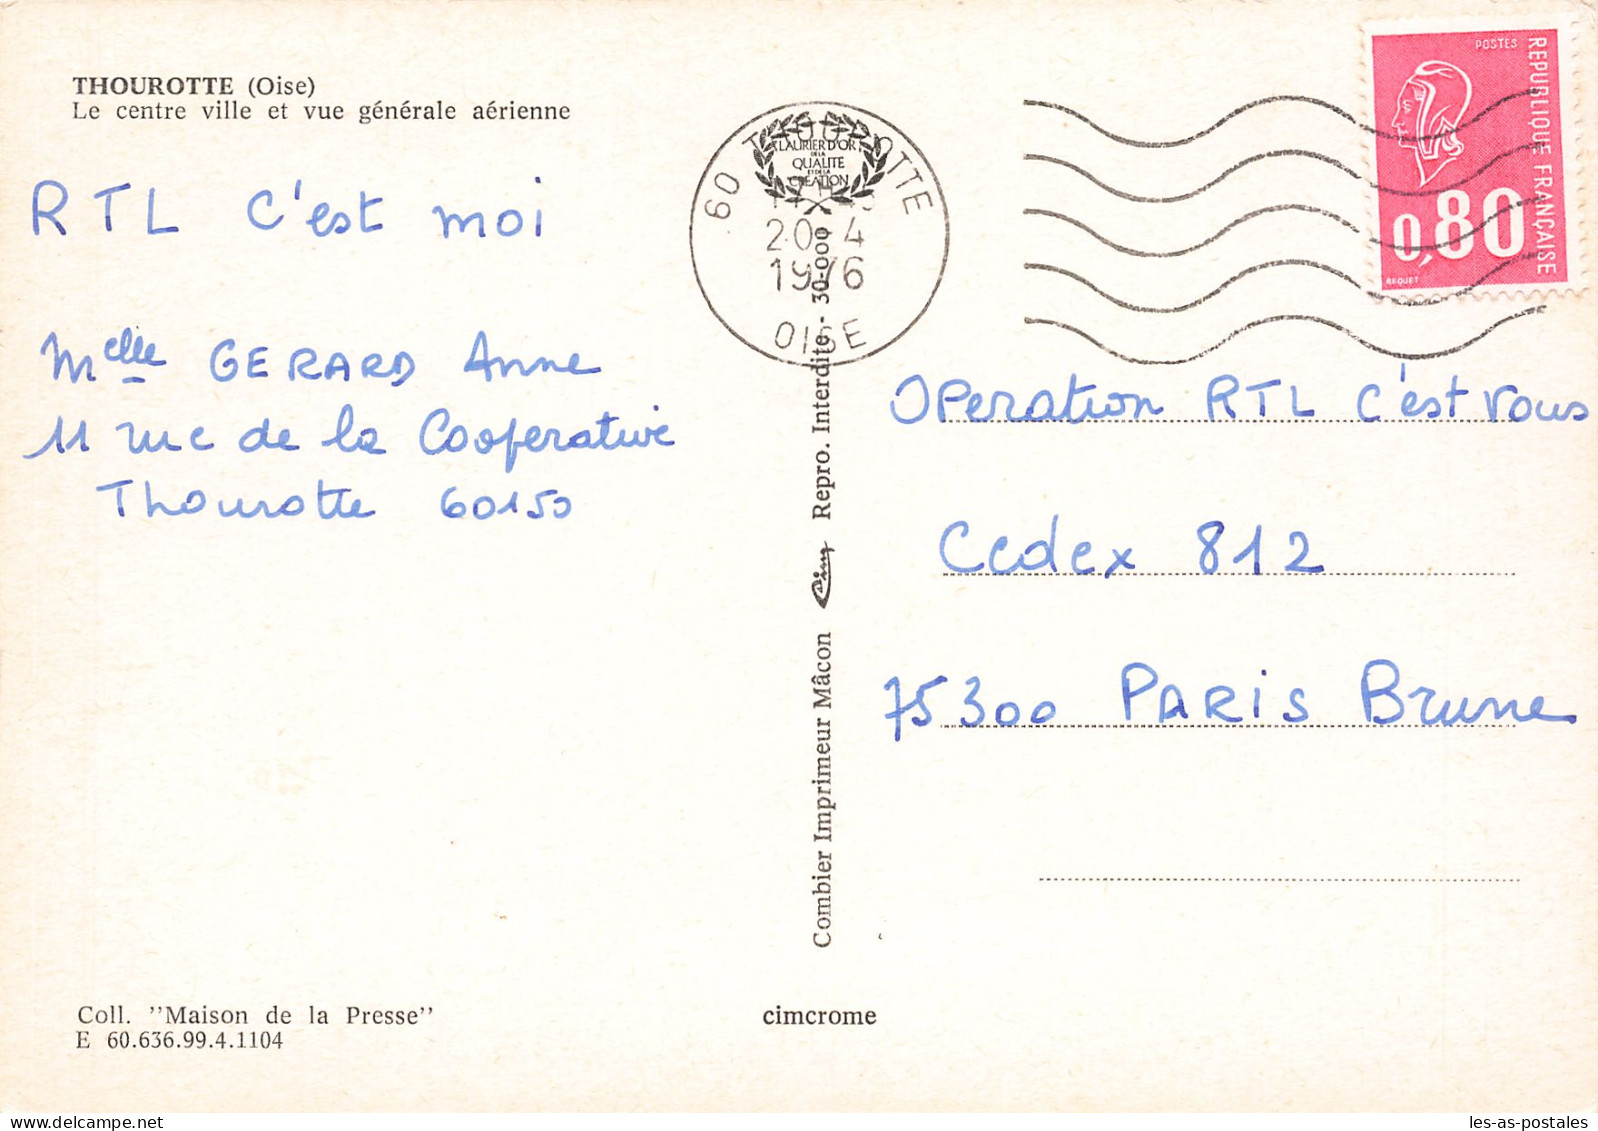 THOUROTTE (Oise)
Le centre ville et vue générale aérienne
RTL c'est moi
Melle GERARD Anne
11 rue de la Cooperative
Thourotte 60150
60 THOUROTTE
20-4
1976
OISE
LAURIER D'OR
DE LA
QUALITE
ET DE LA
CREATION
POSTES
REPUBLIQUE FRANÇAISE
0,80
BEQUET
Operation RTL c'est vous
Cedex 812
75300 PARIS Brune
Combier Imprimeur Mâcon Cim Repro. Interdite - 30-000
Coll. "Maison de la Presse"
E 60.636.99.4.1104
cimcrome
les-as-postales